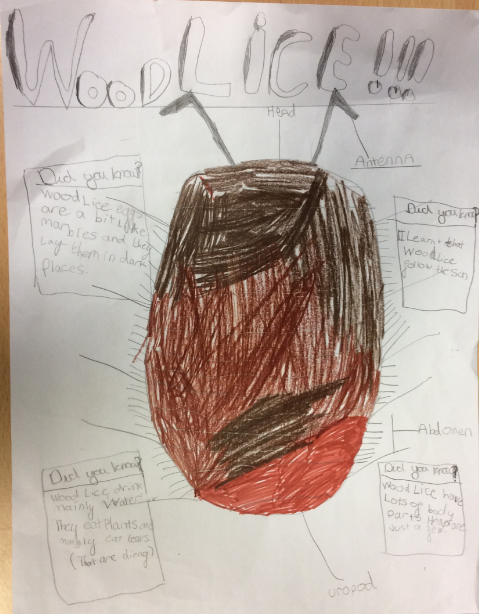 WOODLICE!!!
Head
Antenna
Did you know?
Wood Lice eggs
are a bit like
marbles and they
Lay them in dark
Places.
Did you know?
I Learnt that
Wood Lice
follow the
Abdomen
Did you know?
Wood Lice drink
mainly Water
They eat Plants and
mainly
(That are dieng)
Did you know?
Wood LICE have
Lots of body
Parts these are
Just a few
uropod